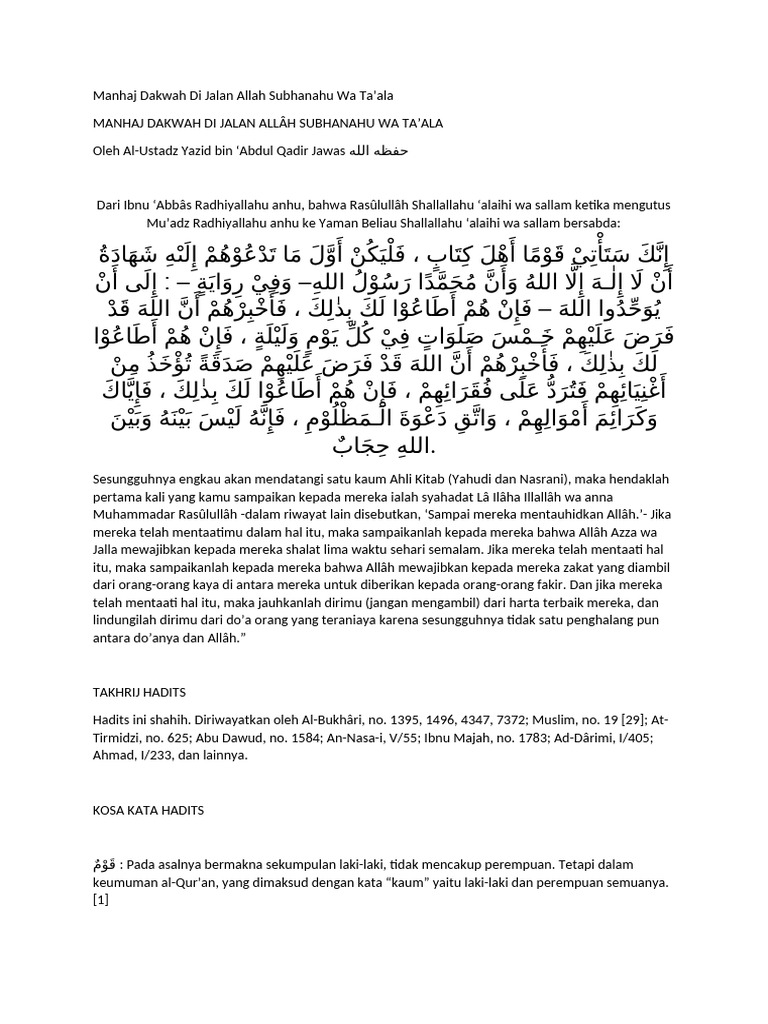 Manhaj Dakwah Di Jalan Allah Subhanahu Wa Ta'ala
MANHAJ DAKWAH DI JALAN ALLÂH SUBHANAHU WA TA’ALA
Oleh Al-Ustadz Yazid bin ‘Abdul Qadir Jawas حفظه الله
Dari Ibnu ‘Abbâs Radhiyallahu anhu, bahwa Rasûlullâh Shallallahu ‘alaihi wa sallam ketika mengutus
Mu’adz Radhiyallahu anhu ke Yaman Beliau Shallallahu ‘alaihi wa sallam bersabda:
إِنَّكَ سَتَأْتِيْ قَوْمًا أَهْلَ كِتَابٍ ، فَلْيَكُنْ أَوَّلَ مَا تَدْعُوْهُمْ إِلَيْهِ شَهَادَةُ
أَنْ لَا إِلٰـهَ إِلَّا اللهُ وَأَنَّ مُحَمَّدًا رَسُوْلُ اللهِ– وَفِيْ رِوَايَةٍ – : إِلَى أَنْ
يُوَحِّدُوا اللهَ – فَإِنْ هُمْ أَطَاعُوْا لَكَ بِذٰلِكَ ، فَأَخْبِرْهُمْ أَنَّ اللهَ قَدْ
فَرَضَ عَلَيْهِمْ خَـمْسَ صَلَوَاتٍ فِيْ كُلِّ يَوْمٍ وَلَيْلَةٍ ، فَإِنْ هُمْ أَطَاعُوْا
لَكَ بِذٰلِكَ ، فَأَخْبِرْهُمْ أَنَّ اللهَ قَدْ فَرَضَ عَلَيْهِمْ صَدَقَةً تُؤْخَذُ مِنْ
أَغْنِيَائِهِمْ فَتُرَدُّ عَلَى فُقَرَائِهِمْ ، فَإِنْ هُمْ أَطَاعُوْا لَكَ بِذٰلِكَ ، فَإِيَّاكَ
وَكَرَائِمَ أَمْوَالِهِمْ ، وَاتَّقِ دَعْوَةَ الْـمَظْلُوْمِ ، فَإِنَّهُ لَيْسَ بَيْنَهُ وَبَيْنَ
اللهِ حِجَابٌ.
Sesungguhnya engkau akan mendatangi satu kaum Ahli Kitab (Yahudi dan Nasrani), maka hendaklah
pertama kali yang kamu sampaikan kepada mereka ialah syahadat Lâ Ilâha Illallâh wa anna
Muhammadar Rasûlullâh -dalam riwayat lain disebutkan, ‘Sampai mereka mentauhidkan Allâh.’- Jika
mereka telah mentaatimu dalam hal itu, maka sampaikanlah kepada mereka bahwa Allâh Azza wa
Jalla mewajibkan kepada mereka shalat lima waktu sehari semalam. Jika mereka telah mentaati hal
itu, maka sampaikanlah kepada mereka bahwa Allâh mewajibkan kepada mereka zakat yang diambil
dari orang-orang kaya di antara mereka untuk diberikan kepada orang-orang fakir. Dan jika mereka
telah mentaati hal itu, maka jauhkanlah dirimu (jangan mengambil) dari harta terbaik mereka, dan
lindungilah dirimu dari do’a orang yang teraniaya karena sesungguhnya tidak satu penghalang pun
antara do’anya dan Allâh.”
TAKHRIJ HADITS
Hadits ini shahih. Diriwayatkan oleh Al-Bukhâri, no. 1395, 1496, 4347, 7372; Muslim, no. 19 [29]; At-
Tirmidzi, no. 625; Abu Dawud, no. 1584; An-Nasa-i, V/55; Ibnu Majah, no. 1783; Ad-Dârimi, I/405;
Ahmad, I/233, dan lainnya.
KOSA KATA HADITS
قَوْمٌ : Pada asalnya bermakna sekumpulan laki-laki, tidak mencakup perempuan. Tetapi dalam
keumuman al-Qur’an, yang dimaksud dengan kata “kaum” yaitu laki-laki dan perempuan semuanya.
[1]